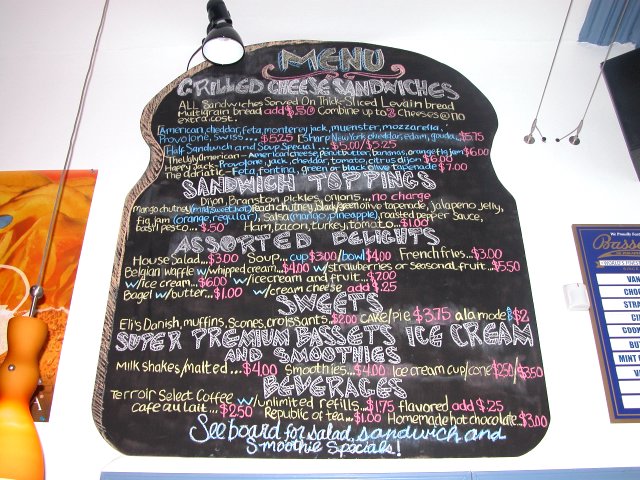 MENU
GRILLED CHEESE SANDWICHES
ALL Sandwiches Served On Thick Sliced Levain bread
Multigrain bread add $.50 Combine up to 2 cheeses @ no
extra cost.
American, cheddar, feta, monterey jack, muenster, mozzarella,
Provolone, swiss... $5.25 Sharp New York cheddar, edam, gouda $5.75
Half Sandwich and Soup Special... $5.00/$5.25
The Ugly American - American cheese, peanut butter, bananas, orange fig jam $6.00
Happy Jack - Provolone, jack, cheddar, tomato, citrus dijon $6.00
The adriatic - Feta, fontina, green or black olive tapenade $7.00
SANDWICH TOPPINGS
Dijon, Branston pickles, onions... no charge
Mango chutney (mild, sweet, hot) Peach chutney, black/green olive tapenade, jalapeno jelly,
fig jam (orange, regular), Salsa (mango, pineapple), roasted pepper sauce,
basil pesto... $.50 Ham, bacon, turkey, tomato... $1.00
ASSORTED DELIGHTS
House Salad... $3.00 Soup... cup $3.00/bowl $4.00 French fries... $3.00
Belgian waffle w/whipped cream... $4.00 w/strawberries or seasonal fruit... $5.50
w/ice cream... $6.00 w/ice cream and fruit... $7.00
Bagel w/butter... $1.00 w/cream cheese add $.25
SWEETS
Eli's Danish, muffins, scones, croissants... $2.00 cake/pie $3.75 ala mode $2
SUPER PREMIUM BASSETS ICE CREAM
AND SMOOTHIES
Milkshakes/malted... $4.00 Smoothies... $4.00 Ice cream cup/cone $2.50/$3.50
BEVERAGES
Terroir Select Coffee w/unlimited refills... $1.75 flavored add $.25
cafe au lait... $2.50 Republic of tea... $1.00 Homemade hot chocolate... $3.00
See board for salad, sandwich and
Smoothie Specials!
Basse